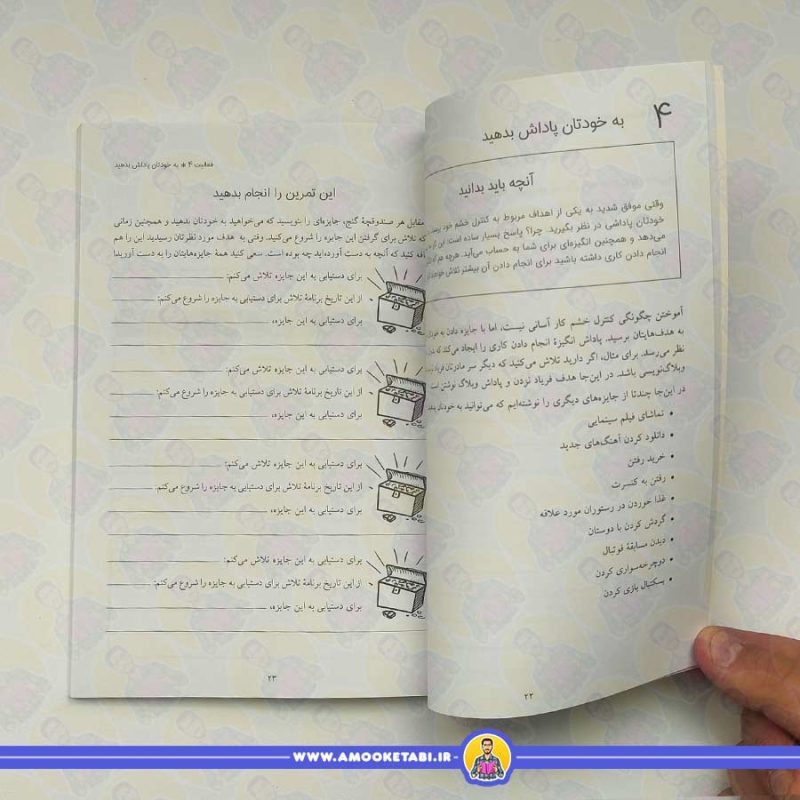 ۴
به خودتان پاداش بدهید
آنچه باید بدانید
وقتی موفق شدید به یکی از اهداف مربوط به کنترل خشم خود
خودتان پاداشی در نظر بگیرید. چرا؟ پاسخ بسیار ساده است: این
می‌دهد و همچنین انگیزه‌ای برای شما به حساب می‌آید. هرچه
انجام دادن کاری داشته باشید برای انجام دادن آن بیشتر تلاش خواهید
آموختن چگونگی کنترل خشم کار آسانی نیست، اما با جایزه دادن به
به هدف‌هایتان برسید. پاداش انگیزهٔ انجام دادن کاری را ایجاد می‌کند که
نظر می‌رسد. برای مثال، اگر دارید تلاش می‌کنید که دیگر سر مادرتان فریاد
وبلاگ‌نویسی باشد. در این‌جا هدف فریاد نزدن و پاداش وبلاگ نوشتن است
در این‌جا چندتا از جایزه‌های دیگری را نوشته‌ایم که می‌توانید به خودتان
• تماشای فیلم سینمایی
• دانلود کردن آهنگ‌های جدید
• خرید رفتن
• رفتن به کنسرت
• غذا خوردن در رستوران مورد علاقه
• گردش کردن با دوستان
• دیدن مسابقهٔ فوتبال
• دوچرخه‌سواری کردن
• بسکتبال بازی کردن
۲۲
فعالیت ۴ * به خودتان پاداش بدهید
این تمرین را انجام بدهید
مقابل هر صندوقچهٔ گنج، جایزه‌ای را بنویسید که می‌خواهید به خودتان بدهید و همچنین زمانی
که تلاش برای گرفتن این جایزه را شروع می‌کنید. وقتی به هدف مورد نظرتان رسیدید این را هم
کنید که آنچه به دست آورده‌اید چه بوده است. سعی کنید همهٔ جایزه‌هایتان را به دست آورید!
برای دستیابی به این جایزه تلاش می‌کنم:
از این تاریخ برنامهٔ تلاش برای دستیابی به جایزه را شروع می‌کنم:
برای دستیابی به این جایزه،
برای دستیابی به این جایزه تلاش می‌کنم:
از این تاریخ برنامهٔ تلاش برای دستیابی به جایزه را شروع می‌کنم:
برای دستیابی به این جایزه،
برای دستیابی به این جایزه تلاش می‌کنم:
از این تاریخ برنامهٔ تلاش برای دستیابی به جایزه را شروع می‌کنم:
برای دستیابی به این جایزه،
برای دستیابی به این جایزه تلاش می‌کنم:
از این تاریخ برنامهٔ تلاش برای دستیابی به جایزه را شروع می‌کنم:
برای دستیابی به این جایزه،
۲۳
WWW.AMOOKETABI.IR